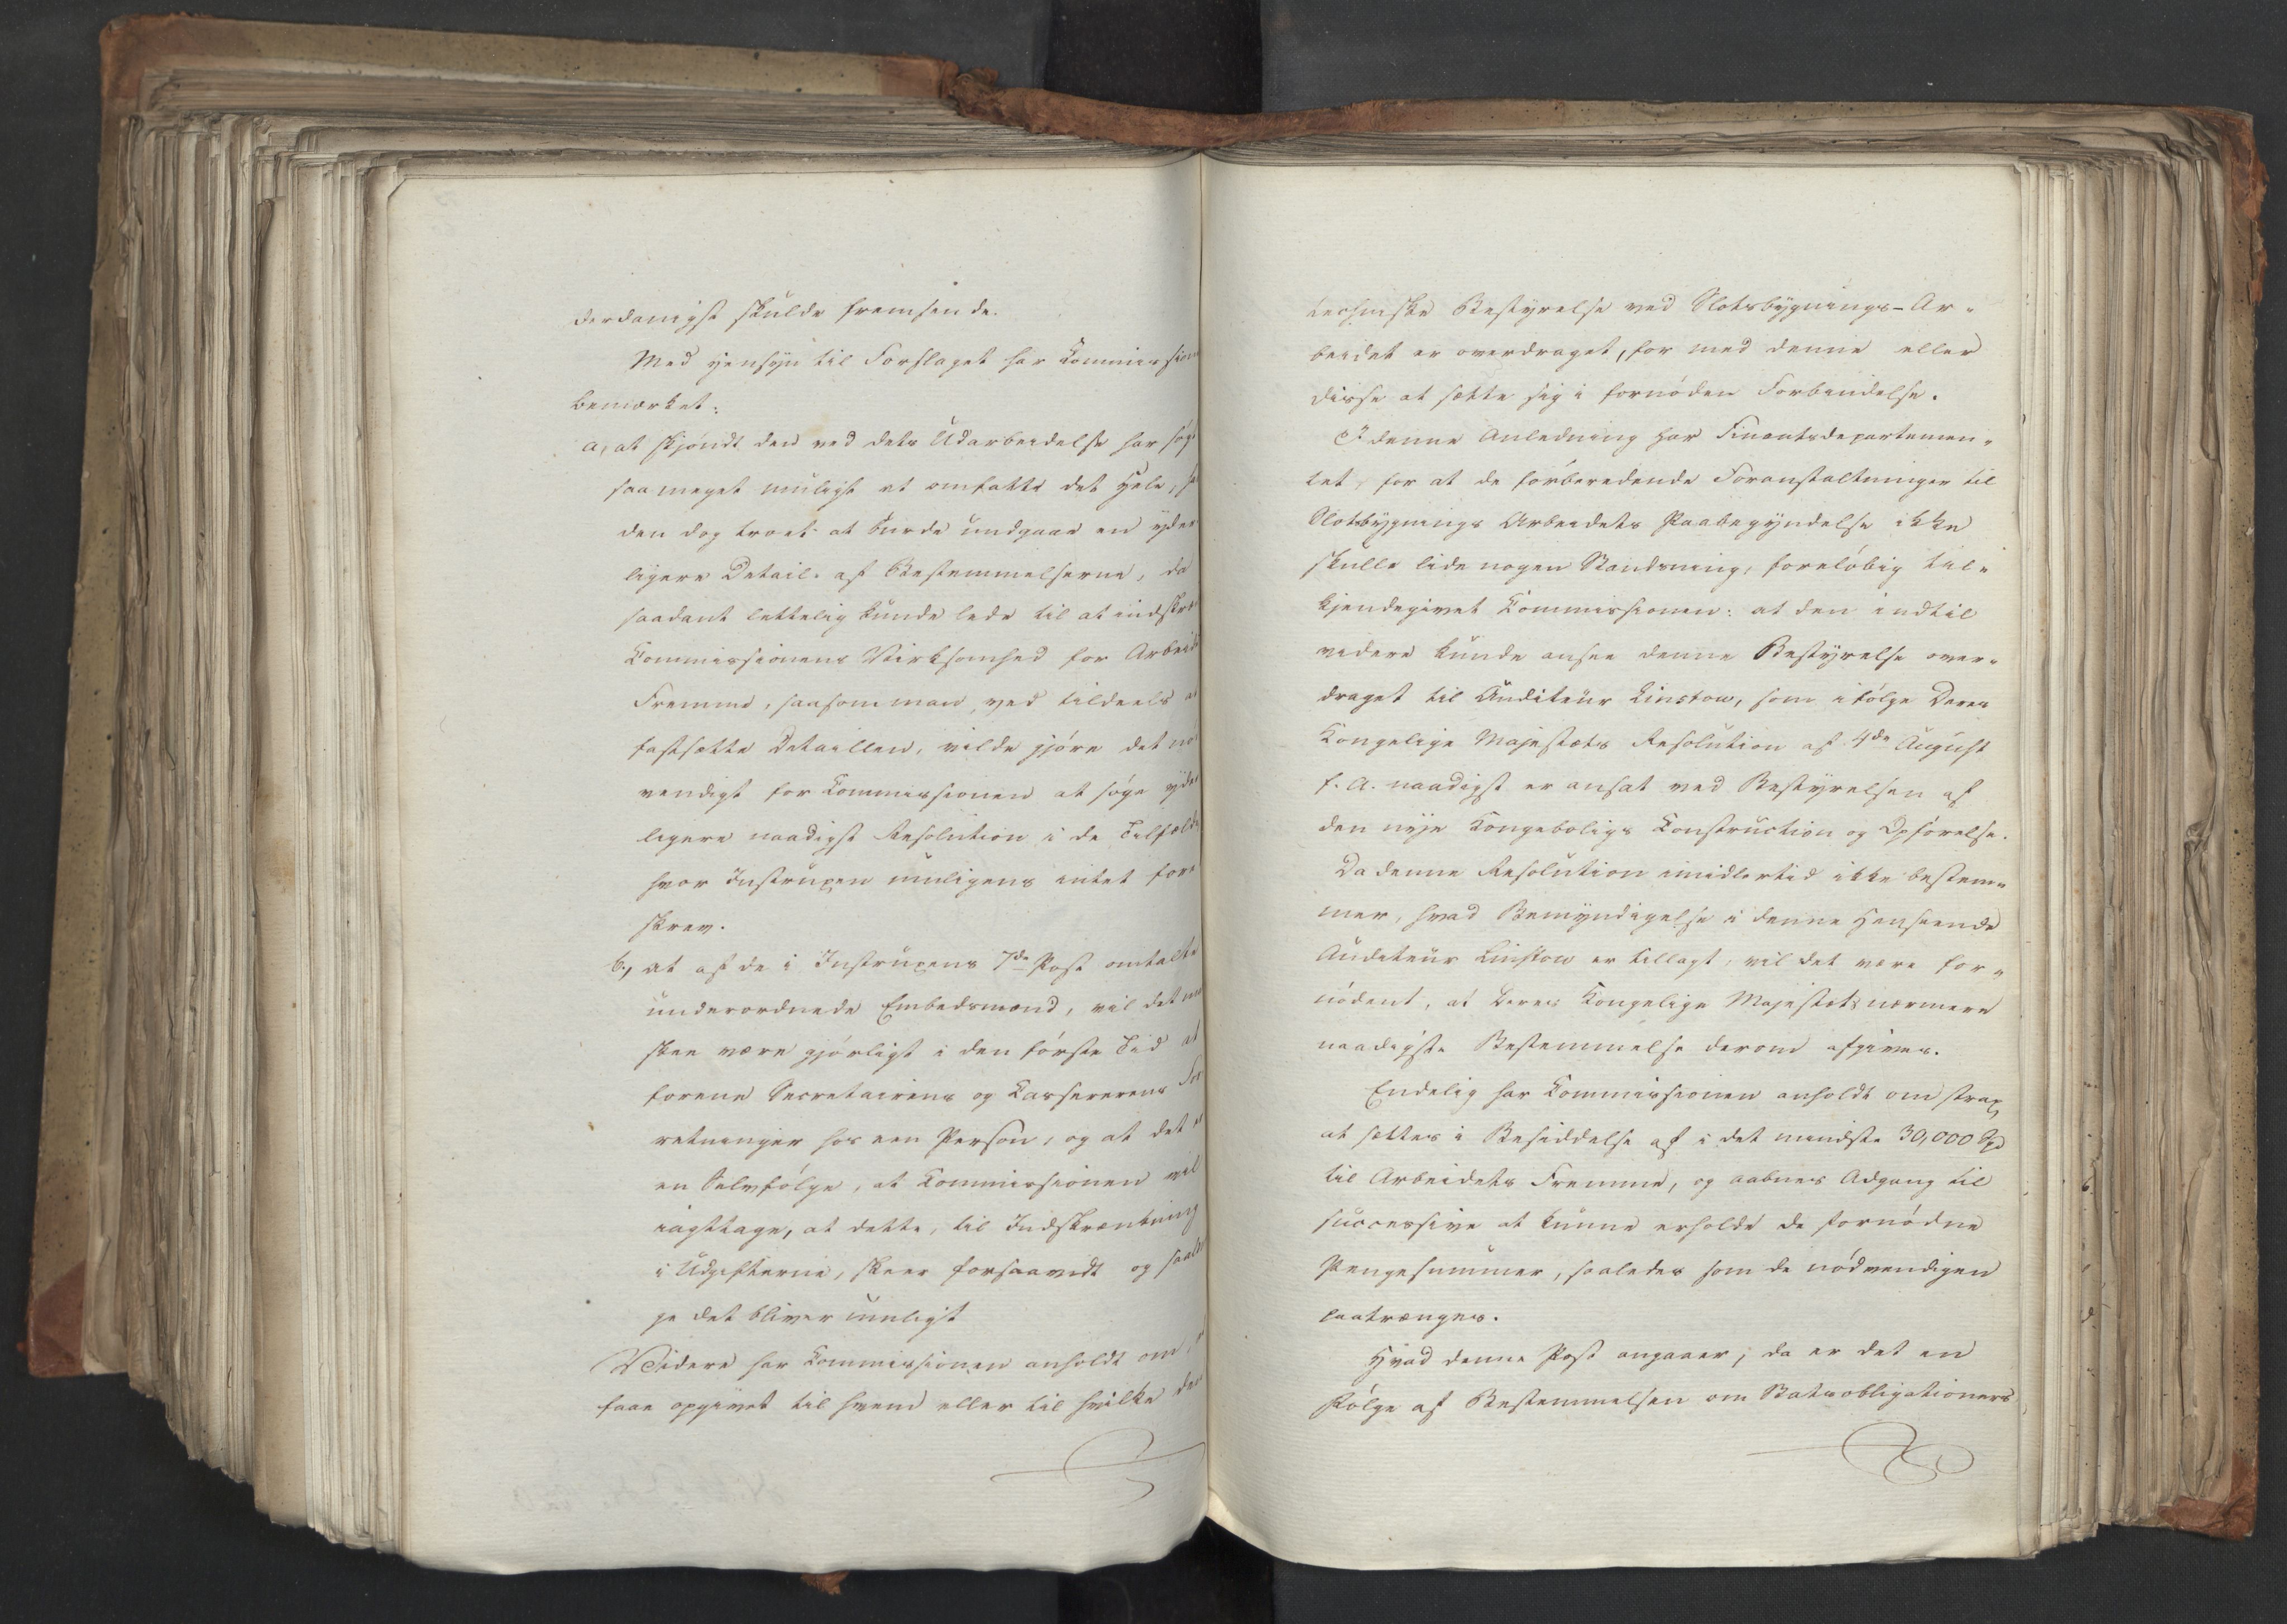 derdanigst skulde fremsende.
Med Hensyn til Forslaget har Commission
bemærket:
a, at skjöndt den ved dets Udarbeidelse har søgt
saa meget muligt at omfatte det Hele, ha
den dog troet at burde undgaae en yder
ligere Detail af Bestemmelserne, da
saadant lettelig kunde lede til at indskræ
Commissionens Virksomhed for Arbeid
Fremme, saasom man, ved tildeels at
fastsætte Detaillen, vilde gjöre det nö
vendigt for Commissionen at söge yder
ligere naadigst Resolution i de Tilfælde
hvor Instruxen muligens intet fore
skrev.
b, at af de i Instruxens 7de Post omtalte
underordnede Embedsmænd, vil det maa
skee være gjörligt i den förste Tid at
forene Secretairens og Cassererens For
retninger hos een Person, og at det er
en Selvfölge, at Commissionen vil
iagttage, at dette, til Indskrænkning
i Udgifterne, skeer forsaavidt og saalæn
ge det bliver muligt
Videre har Commissionen anholdt om at
faae opgivet til hvem eller til hvilke den
techniske Bestyrelse ved Slotsbygnings-Ar-
beidet er overdraget, for med denne eller
disse at sætte sig i fornöden Forbindelse.
I denne Anledning har Finantsdepartemen-
tet, for at de forberedende Foranstaltninger til
Slotsbygnings Arbeidets Paabegyndelse ikke
skulle lide nogen Standsning, forelöbig til-
kjendegivet Commissionen: at den indtil
videre kunde ansee denne Bestyrelse over-
draget til Auditeur Linstow, som ifölge Deres
Kongelige Majestæts Resolution af 4de August
f. A. naadigst er ansat ved Bestyrelsen af
den nye Kongeboligs Construction og Opförelse.
Da denne Resolution imidlertid ikke bestem-
mer, hvad Bemyndigelse i denne Henseende
Auditeur Linstow er tillagt, vil det være for-
nödent, at Deres Kongelige Majestæts nærmere
naadigste Bestemmelse derom afgives.
Endelig har Commissionen anholdt om strax
at sættes i Besiddelse af i det mindste 30,000 Spd
til Arbeidets Fremme, og aabnes Adgang til
successive at kunne erholde de fornödne
Pengesummer, saaledes som de nödvendigen
paatrænges.
Hvad denne Post angaaer, da er det en
Fölge af Bestemmelsen om Statsobligationers